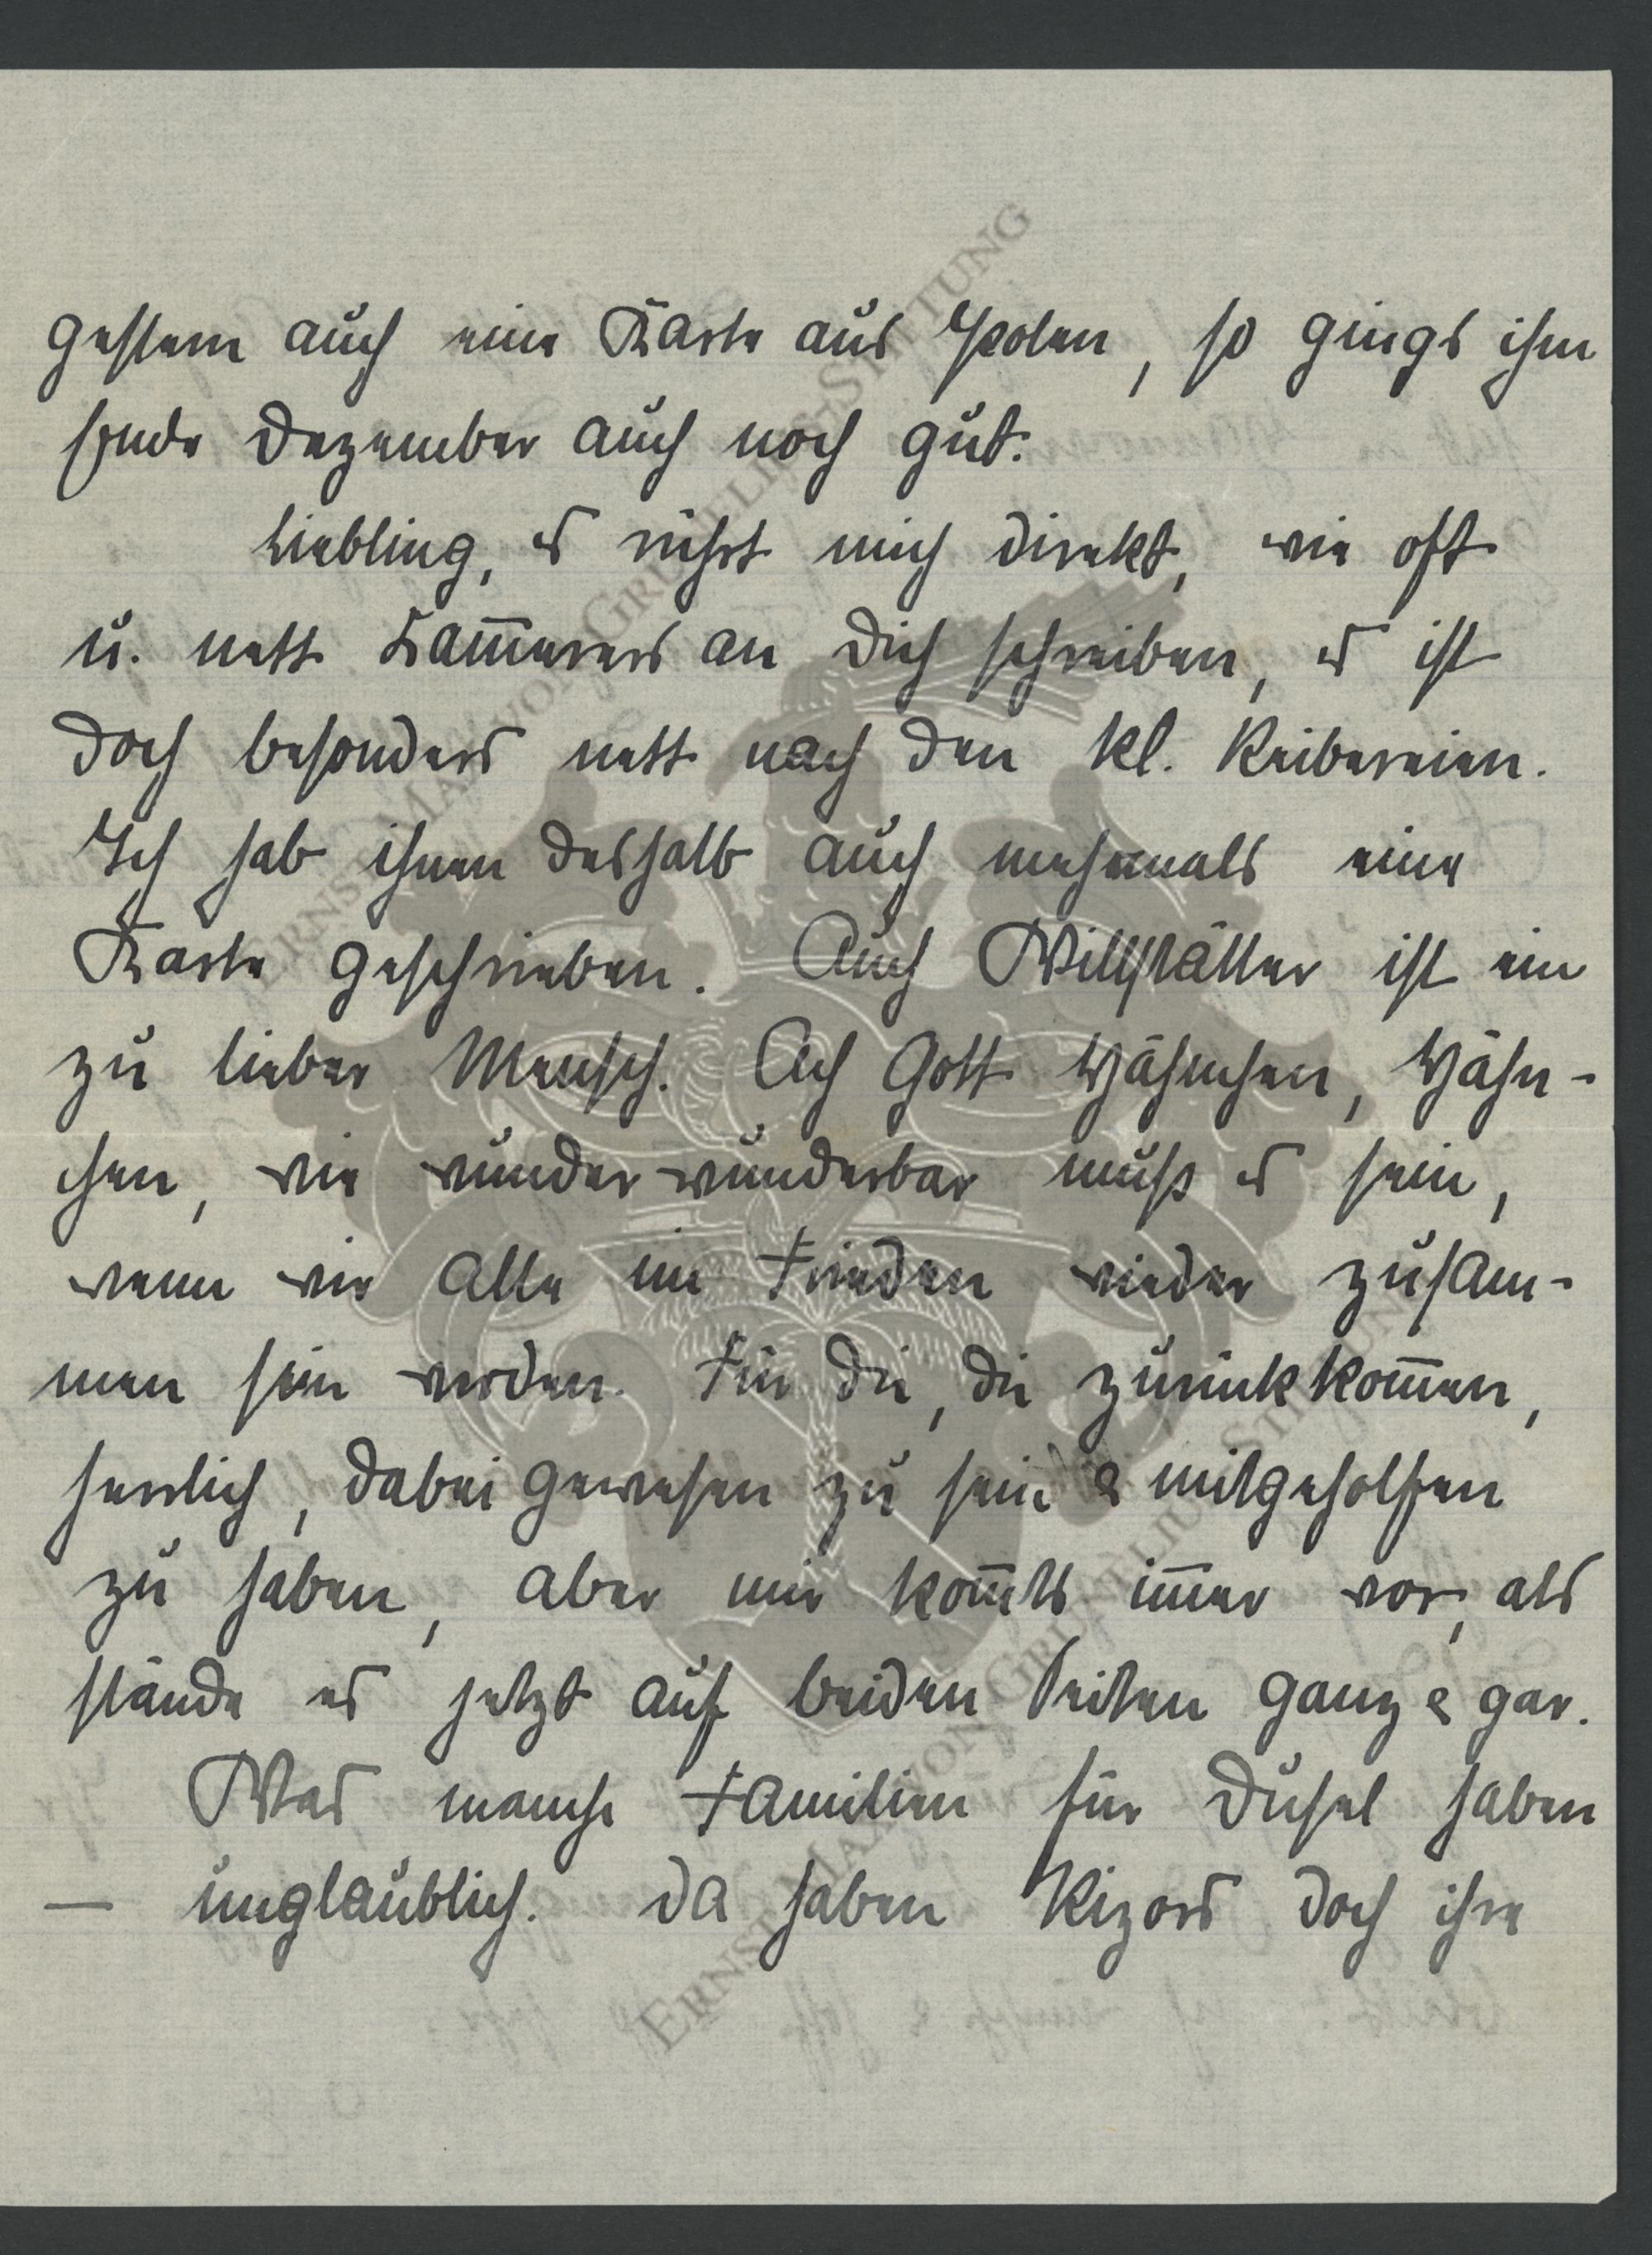 gestern auch eine Karte aus Polen, so gings ihm
Ende Dezember auch noch gut.
Liebling, es rührt mich direkt, wie oft
u. nett Kam̅erers an Dich schreiben, es ist
doch besonders nett nach den kl. Reibereien.
Ich hab ihnen deshalb auch mehrmals eine
Karte geschrieben. Auch Willstätter ist ein
zu lieber Mensch. Ach Gott Hähnchen, Hähn-
chen, wie wunderwunderbar muß es sein,
wenn wir alle im Frieden wieder zusam-
men sein werden. Für die, die zurückkom̅en,
herrlich, dabei gewesen zu sein & mitgeholfen
zu haben, aber mir kom̅ts im̅er vor, als
stände es jetzt auf beiden Seiten ganz & gar.
Was manche Familien für Dusel haben
— unglaublich. Da haben Rizors doch ihre
ERNST MAX VON GRUNELIUS-STIFTUNG
ERNST MAX VON GRUNELIUS-STIFTUNG